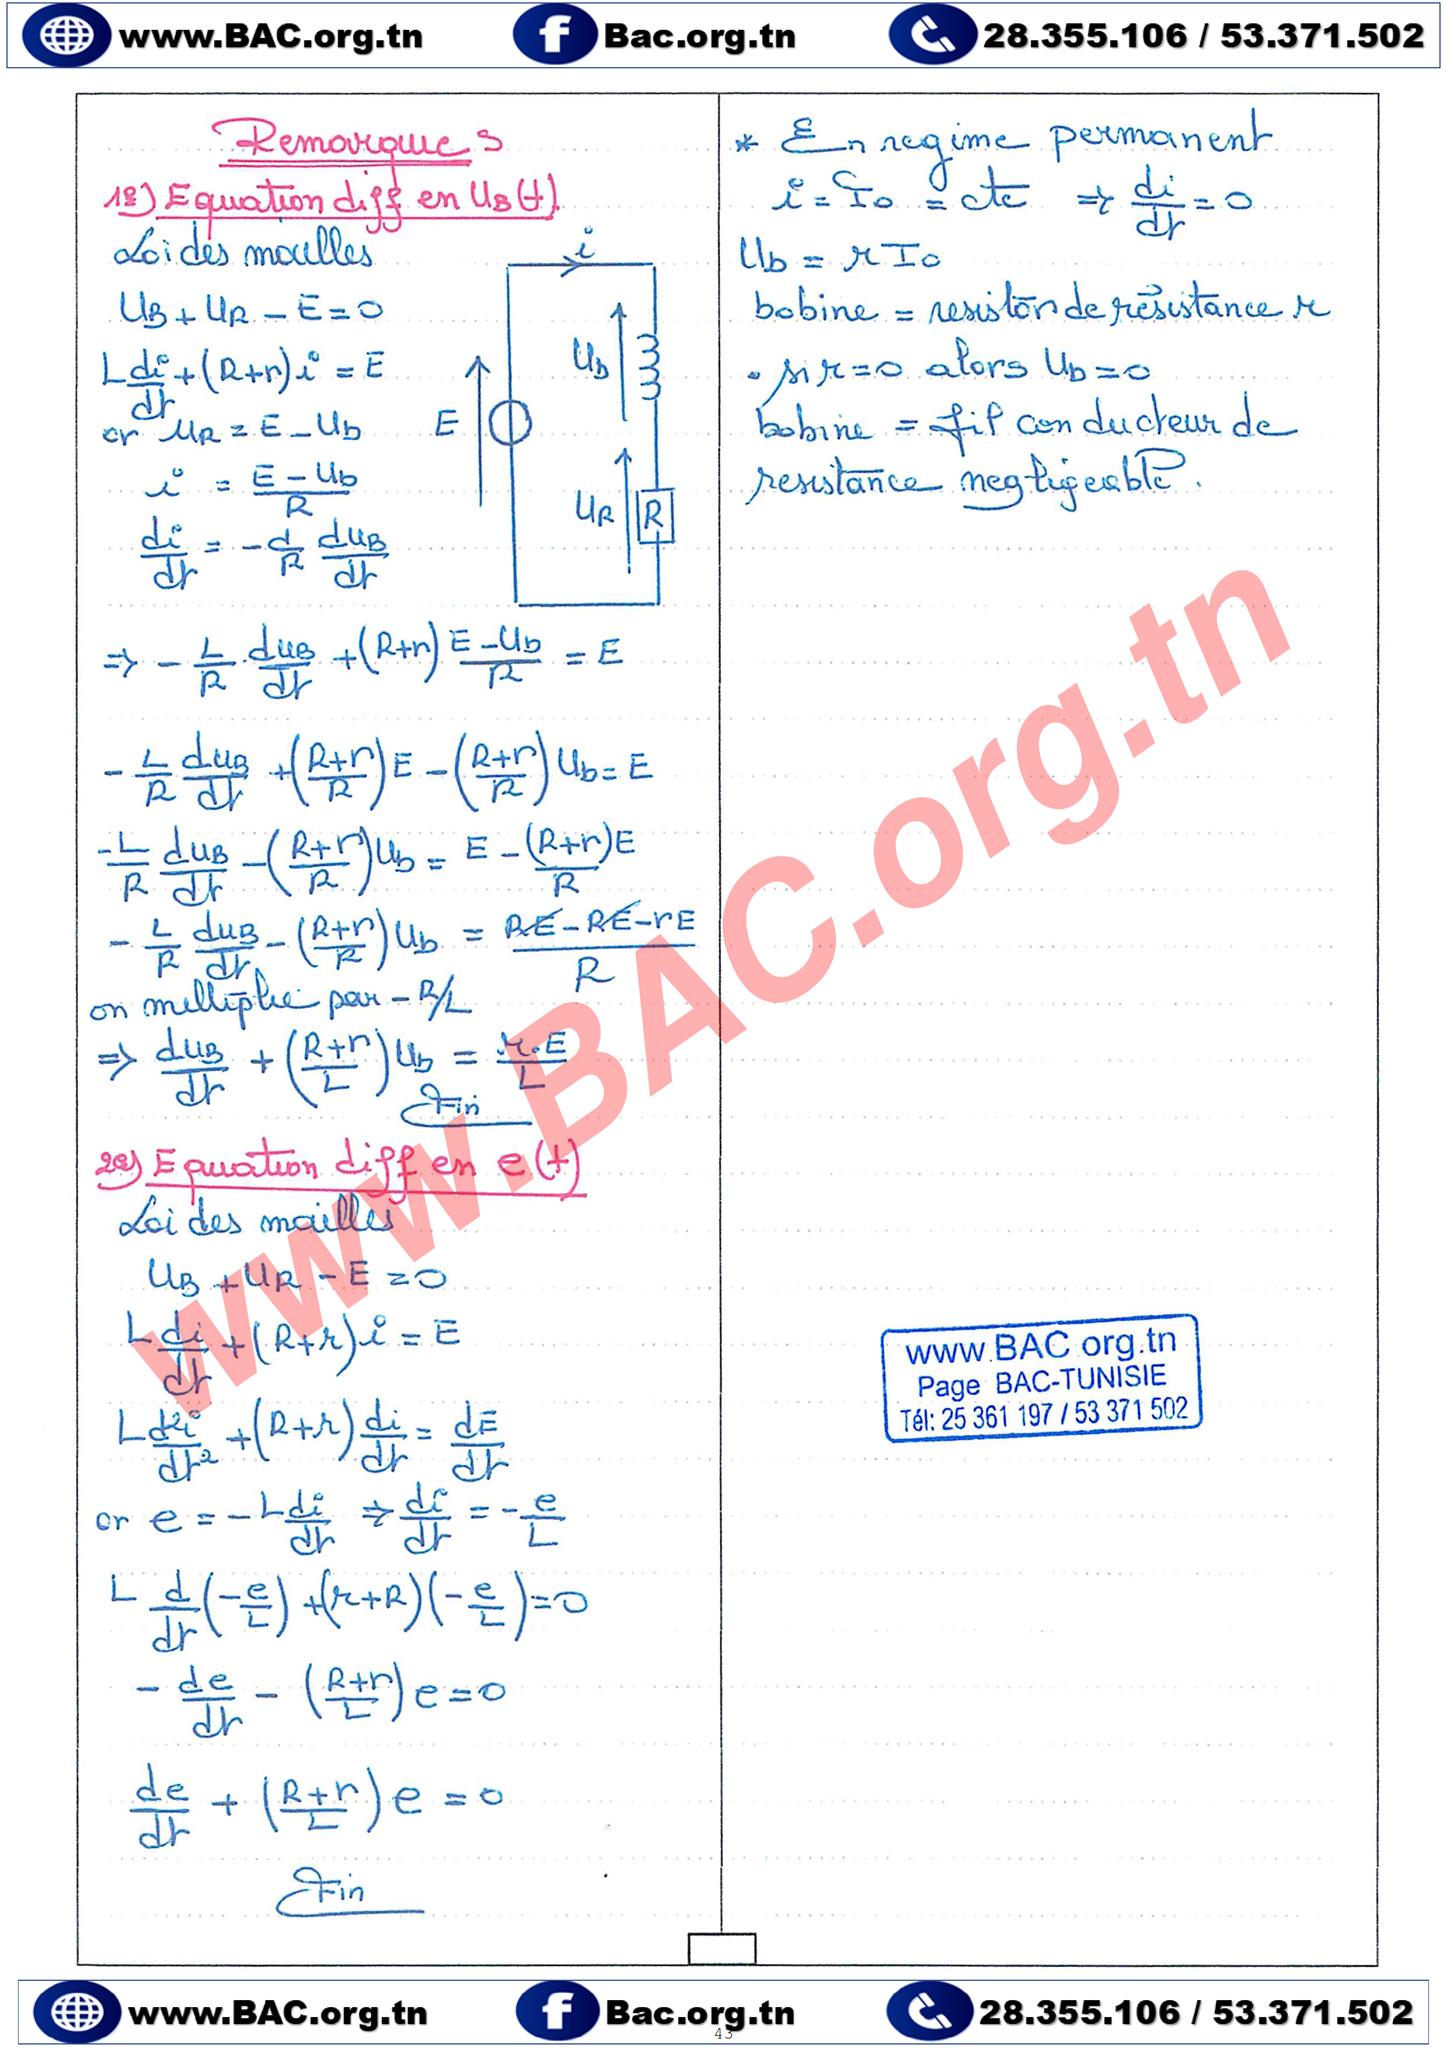 www.BAC.org.tn
Bac.org.tn
28.355.106 / 53.371.502
Remarques
1e) Equation diff en UB(t)
Loi des mailles
UB + UR - E = 0
L di/dt + (R+r) i = E
or uR = E - Ub
i = (E - Ub)/R
di/dt = - 1/R duB/dt
i
Ub
E
UR
R
=> - L/R . duB/dt + (R+r) (E - Ub)/R = E
- L/R duB/dt + ((R+r)/R) E - ((R+r)/R) Ub = E
- L/R duB/dt - ((R+r)/R) Ub = E - (R+r)E/R
- L/R duB/dt - ((R+r)/R) Ub = (RE - RE - rE)/R
on multiplie par - R/L
=> duB/dt + ((R+r)/L) Ub = r.E/L
Fin
2e) Equation diff en e(t)
Loi des mailles
UB + UR - E = 0
L di/dt + (R+r) i = E
L d²i/dt² + (R+r) di/dt = dE/dt
or e = - L di/dt => di/dt = - e/L
L d/dt (- e/L) + (r+R) (- e/L) = 0
- de/dt - ((R+r)/L) e = 0
de/dt + ((R+r)/L) e = 0
Fin
* En regime permanent
i = I0 = cte => di/dt = 0
Ub = r I0
bobine = resistor de résistance r
. si r = 0 alors Ub = 0
bobine = fil conducteur de
resistance negligeable.
www.BAC.org.tn
www.BAC org.tn
Page BAC-TUNISIE
Tél: 25 361 197 / 53 371 502
www.BAC.org.tn
Bac.org.tn
28.355.106 / 53.371.502
43